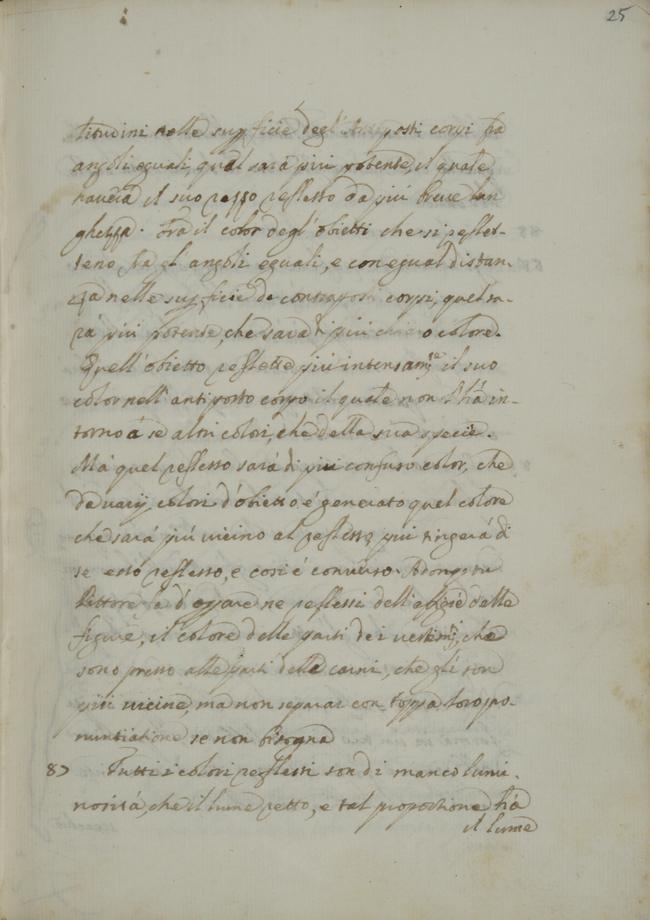 25
litudini nelle superficie degl' antiposti corpi fra
angoli eguali, quel sarà piu potente, il quale
haverà il suo razzo reflesso da piú breve lun
ghezza. Frà il color degl' obietti che si reflet-
teno frà gl' angoli eguali, e con egual distan-
za nelle superficie de contraposti corpi, quel sa-
rà piu potente, che sarà di piu chiaro colore.
Quell' obietto reflette piu intensam.te il suo
color nell' antiposto corpo il quale non hà in-
torno à sè altri colori, che della sua specie.
Mà quel reflesso sarà di piu confuso color, che
de varij colori d'obietto é generato quel colore
che sará piú vicino al reflesso, piu tingerà di
se esso reflesso, e cosi é converso. Adonque tu
Pittore fa d' oprare ne reflessi dell' effigie delle
figure, il colore delle parti de i vestim.ti, che
sono presso alle parti delle carni, che gli son
piu vicine, ma non separar con troppa loro pro-
nuntiatione se non bisogna
87 Tutti i colori reflessi son di manco lumi-
nosità, che il lume retto, e tal proportione hà
il lume